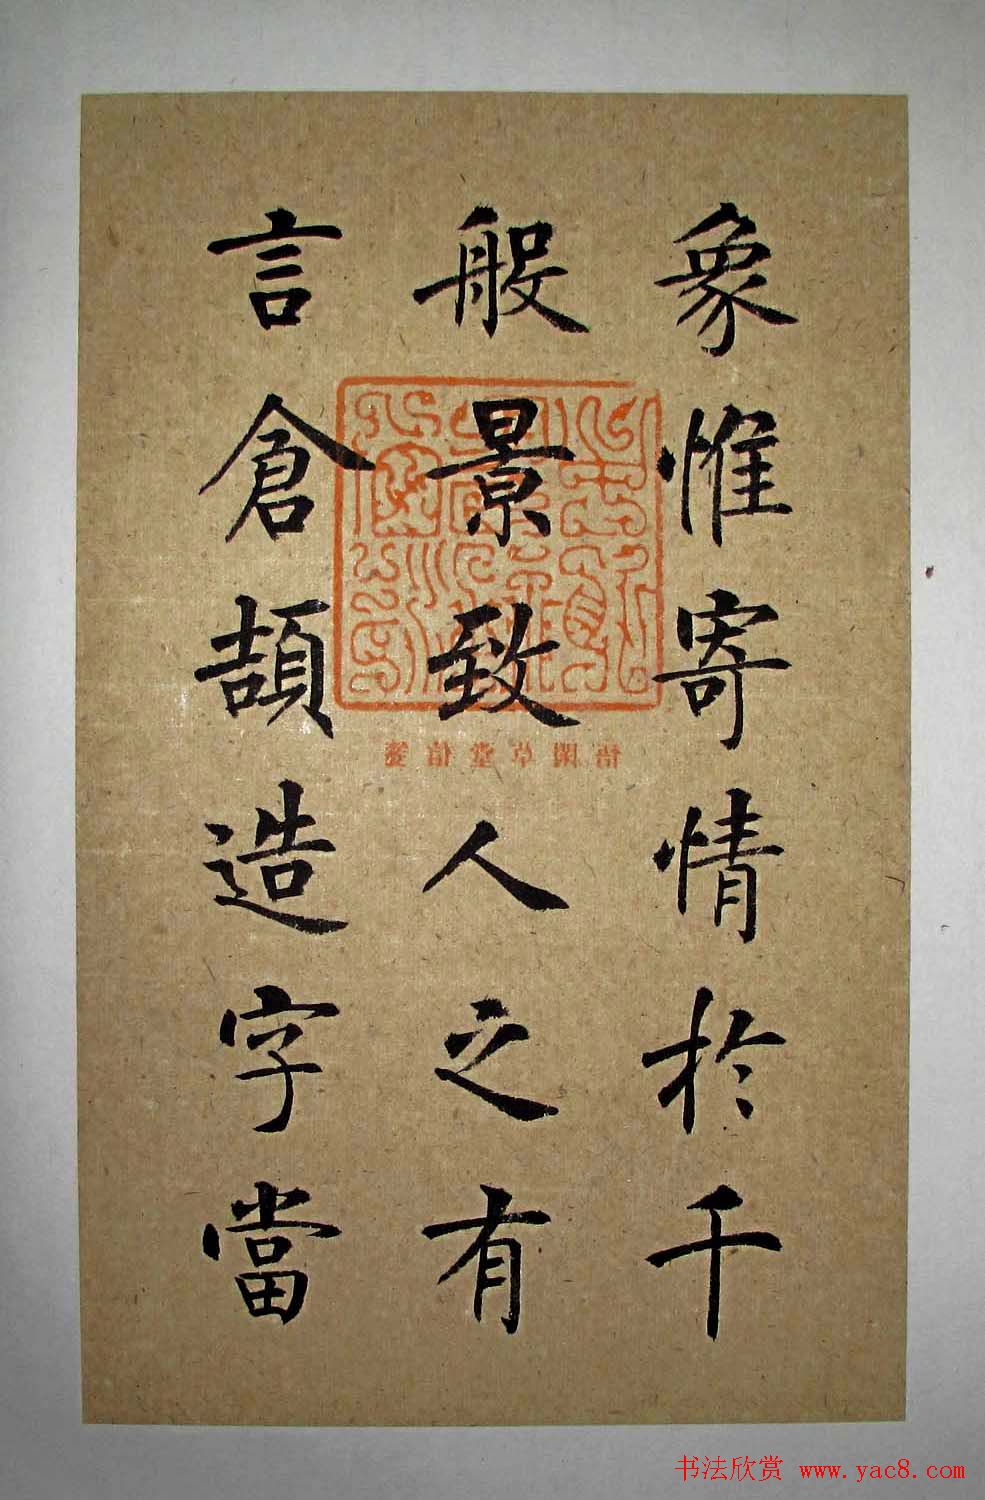 象惟寄情於千
般景致人之有
言倉頡造字當
书法欣赏 www.yac8.com